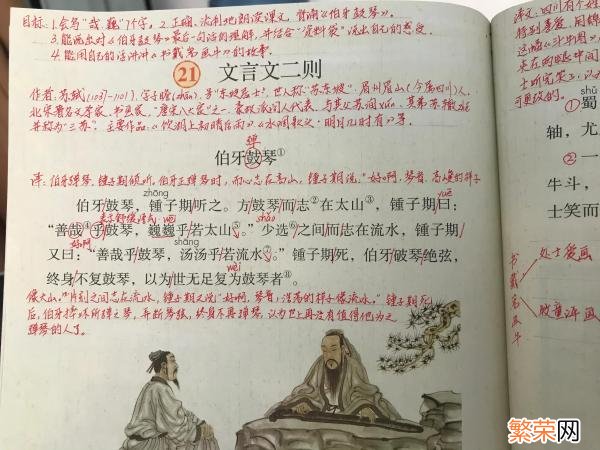 目标：1.会写“哉、巍”等字，2.正确、流利地朗读课文，背诵《伯牙鼓琴》。
3.能说出对《伯牙鼓琴》最后一句话的理解，并结合“资料袋”说出自己的感受。
4.能用自己的话讲讲《书戴嵩画牛》的故事。
21 文言文二则
作者：苏轼(1037-1101)，字子瞻(zhān)，号“东坡居士”，世人称“苏东坡”，眉州眉山（今属四川）人，
北宋著名文学家、书画家，“唐宋八大家”之一，豪放派词人代表，与其父苏洵、其弟苏辙
并称为“三苏”，主要作品：《饮湖上初晴后雨》《水调歌头·明月几时有》等。
弹
伯牙鼓琴①
译：伯牙弹琴，锺子期倾听，伯牙正弹琴时，而心志在高山，锺子期说：“好啊，琴音，高
zhōng yuē
伯牙鼓琴，锺子期听之。方鼓琴而志②在太山③，锺子期曰：
“善哉④乎鼓琴，巍巍乎若太山⑤。”少选⑥之间而志在流水，锺子期
好啊 shāng
又曰：“善哉乎鼓琴，汤汤乎若流水⑦。”锺子期死，伯牙破琴绝弦，
wèi
终身不复鼓琴，以为世无足复为鼓琴者⑧。
像太山。”片刻之间志在流水，锺子期又说：“好啊，琴音，浩荡的样子像流水。”锺子期死
后，伯牙摔坏所弹之琴，弄断琴弦，终身不再弹琴，认为世上再没有值得他为之
弹琴的人了。
①蜀
shǔ
轴，尤
②一
牛斗，
士笑而
书戴嵩画牛
处士爱画
牧童评画
可更改的。
繁荣网